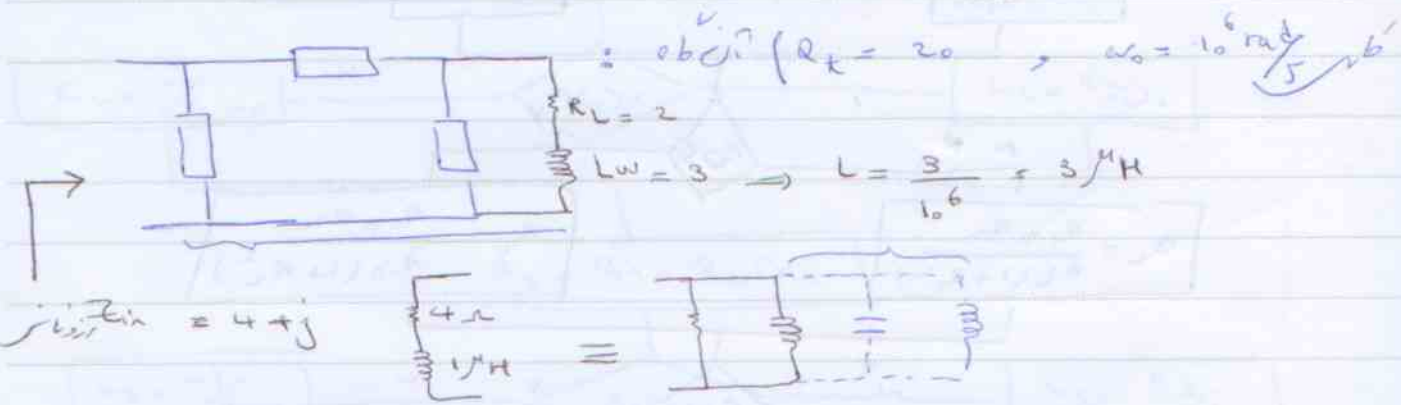 : (Q_t = 20 , ω₀ = 10⁶ rad/s
R_L = 2
Lω = 3 → L = 3/10⁶ = 3 μH
Z_in = 4 + j
4 Ω
1 μH
≡